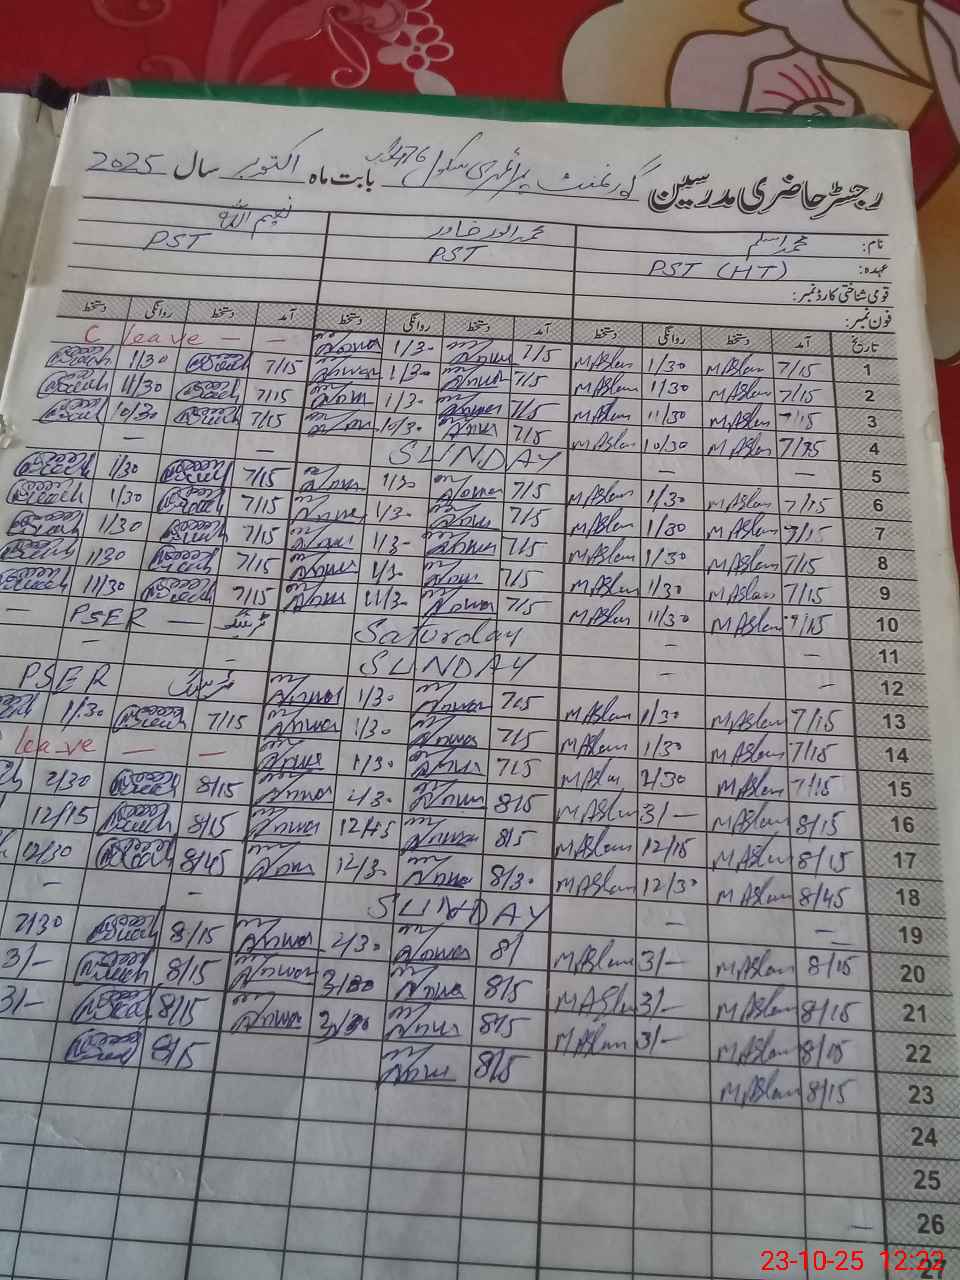 رجسٹر حاضری مدرسین گورنمنٹ پرائمری سکول 476 بابت ماہ اکتوبر سال 2025
نام: محمد اسلم محمد انور خاور نعیم اللہ
عہدہ: PST (HT) PST PST
قومی شناختی کارڈ نمبر:
فون نمبر:
تاریخ آمد دستخط روانگی دستخط آمد دستخط روانگی دستخط آمد دستخط روانگی دستخط
1 7/15 M Aslam 1/30 M Aslam 7/15 Anwar 1/30 Anwar — — C leave
2 7/15 M Aslam 1/30 M Aslam 7/15 Anwar 1/30 Anwar 7/15 1/30
3 7/15 M Aslam 11/30 M Aslam 7/15 Anwar 1/30 Anwar 7/15 11/30
4 M Aslam 10/30 M Aslam 7/15 Anwar 10/30 Anwar 7/15 10/30
5 — — SUNDAY — —
6 7/15 M Aslam 1/30 M Aslam 7/15 Anwar 1/30 Anwar 7/15 1/30
7 7/15 M Aslam 1/30 M Aslam 7/15 Anwar 1/30 Anwar 7/15 1/30
8 7/15 M Aslam 1/30 M Aslam 7/15 Anwar 1/30 Anwar 7/15 1/30
9 7/15 M Aslam 1/30 M Aslam 7/15 Anwar 1/30 Anwar 7/15 1/30
10 7/15 M Aslam 11/30 M Aslam 7/15 Anwar 11/30 Anwar 7/15 11/30
11 — — Saturday ٹریننگ — PSER —
12 — — SUNDAY — —
13 7/15 M Aslam 1/30 M Aslam 7/15 Anwar 1/30 Anwar ٹریننگ PSER
14 7/15 M Aslam 1/30 M Aslam 7/15 Anwar 1/30 Anwar 7/15 1/30
15 7/15 M Aslam 2/30 M Aslam 7/15 Anwar 1/30 Anwar — — leave
16 8/15 M Aslam 3/— M Aslam 8/15 Anwar 2/30 Anwar 8/15 2/30
17 8/15 M Aslam 12/15 M Aslam 8/15 Anwar 12/15 Anwar 8/15 12/15
18 8/45 M Aslam 12/30 M Aslam 8/30 Anwar 12/30 Anwar 8/45 12/30
19 — — SUNDAY — —
20 8/15 M Aslam 3/— M Aslam 8/ Anwar 2/30 Anwar 8/15 2/30
21 8/15 M Aslam 3/— M Aslam 8/15 Anwar Anwar 8/15 3/—
22 8/15 M Aslam 3/— M Aslam 8/15 Anwar Anwar 8/15 3/—
23 8/15 M Aslam 8/15 Anwar 8/15
24
25
26 —
27
23-10-25 12:22